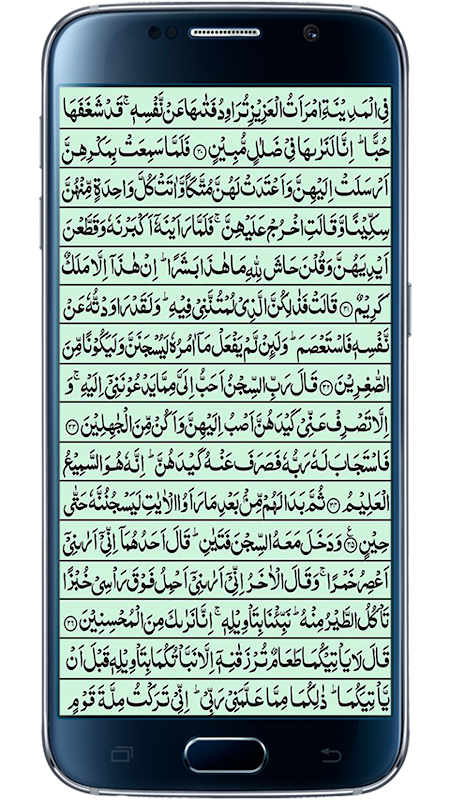 فِی الْمَدِیْنَةِ امْرَاَتُ الْعَزِیْزِ تُرَاوِدُ فَتٰىهَا عَنْ نَّفْسِهٖ ۚ قَدْ شَغَفَهَا
حُبًّا ؕ اِنَّا لَنَرٰىهَا فِیْ ضَلٰلٍ مُّبِیْنٍ ﴿۳۰﴾ فَلَمَّا سَمِعَتْ بِمَكْرِهِنَّ
اَرْسَلَتْ اِلَیْهِنَّ وَ اَعْتَدَتْ لَهُنَّ مُتَّكَاً وَّ اٰتَتْ كُلَّ وَاحِدَةٍ مِّنْهُنَّ
سِكِّیْنًا وَّ قَالَتِ اخْرُجْ عَلَیْهِنَّ ۚ فَلَمَّا رَاَیْنَهٗۤ اَكْبَرْنَهٗ وَ قَطَّعْنَ
اَیْدِیَهُنَّ وَ قُلْنَ حَاشَ لِلّٰهِ مَا هٰذَا بَشَرًا ؕ اِنْ هٰذَاۤ اِلَّا مَلَكٌ
كَرِیْمٌ ﴿۳۱﴾ قَالَتْ فَذٰلِكُنَّ الَّذِیْ لُمْتُنَّنِیْ فِیْهِ ؕ وَ لَقَدْ رَاوَدْتُّهٗ عَنْ
نَّفْسِهٖ فَاسْتَعْصَمَ ؕ وَ لَىِٕنْ لَّمْ یَفْعَلْ مَاۤ اٰمُرُهٗ لَیُسْجَنَنَّ وَ لَیَكُوْنًا مِّنَ
الصّٰغِرِیْنَ ﴿۳۲﴾ قَالَ رَبِّ السِّجْنُ اَحَبُّ اِلَیَّ مِمَّا یَدْعُوْنَنِیْۤ اِلَیْهِ ۚ وَ
اِلَّا تَصْرِفْ عَنِّیْ كَیْدَهُنَّ اَصْبُ اِلَیْهِنَّ وَ اَكُنْ مِّنَ الْجٰهِلِیْنَ ﴿۳۳﴾
فَاسْتَجَابَ لَهٗ رَبُّهٗ فَصَرَفَ عَنْهُ كَیْدَهُنَّ ؕ اِنَّهٗ هُوَ السَّمِیْعُ
الْعَلِیْمُ ﴿۳۴﴾ ثُمَّ بَدَا لَهُمْ مِّنْۢ بَعْدِ مَا رَاَوُا الْاٰیٰتِ لَیَسْجُنُنَّهٗ حَتّٰى
حِیْنٍ ﴿۳۵﴾ وَ دَخَلَ مَعَهُ السِّجْنَ فَتَیٰنِ ؕ قَالَ اَحَدُهُمَاۤ اِنِّیْۤ اَرٰىنِیْۤ
اَعْصِرُ خَمْرًا ۚ وَ قَالَ الْاٰخَرُ اِنِّیْۤ اَرٰىنِیْۤ اَحْمِلُ فَوْقَ رَاْسِیْ خُبْزًا
تَاْكُلُ الطَّیْرُ مِنْهُ ؕ نَبِّئْنَا بِتَاْوِیْلِهٖ ۚ اِنَّا نَرٰىكَ مِنَ الْمُحْسِنِیْنَ ﴿۳۶﴾
قَالَ لَا یَاْتِیْكُمَا طَعَامٌ تُرْزَقٰنِهٖۤ اِلَّا نَبَّاْتُكُمَا بِتَاْوِیْلِهٖ قَبْلَ اَنْ
یَّاْتِیَكُمَا ؕ ذٰلِكُمَا مِمَّا عَلَّمَنِیْ رَبِّیْ ؕ اِنِّیْ تَرَكْتُ مِلَّةَ قَوْمٍ